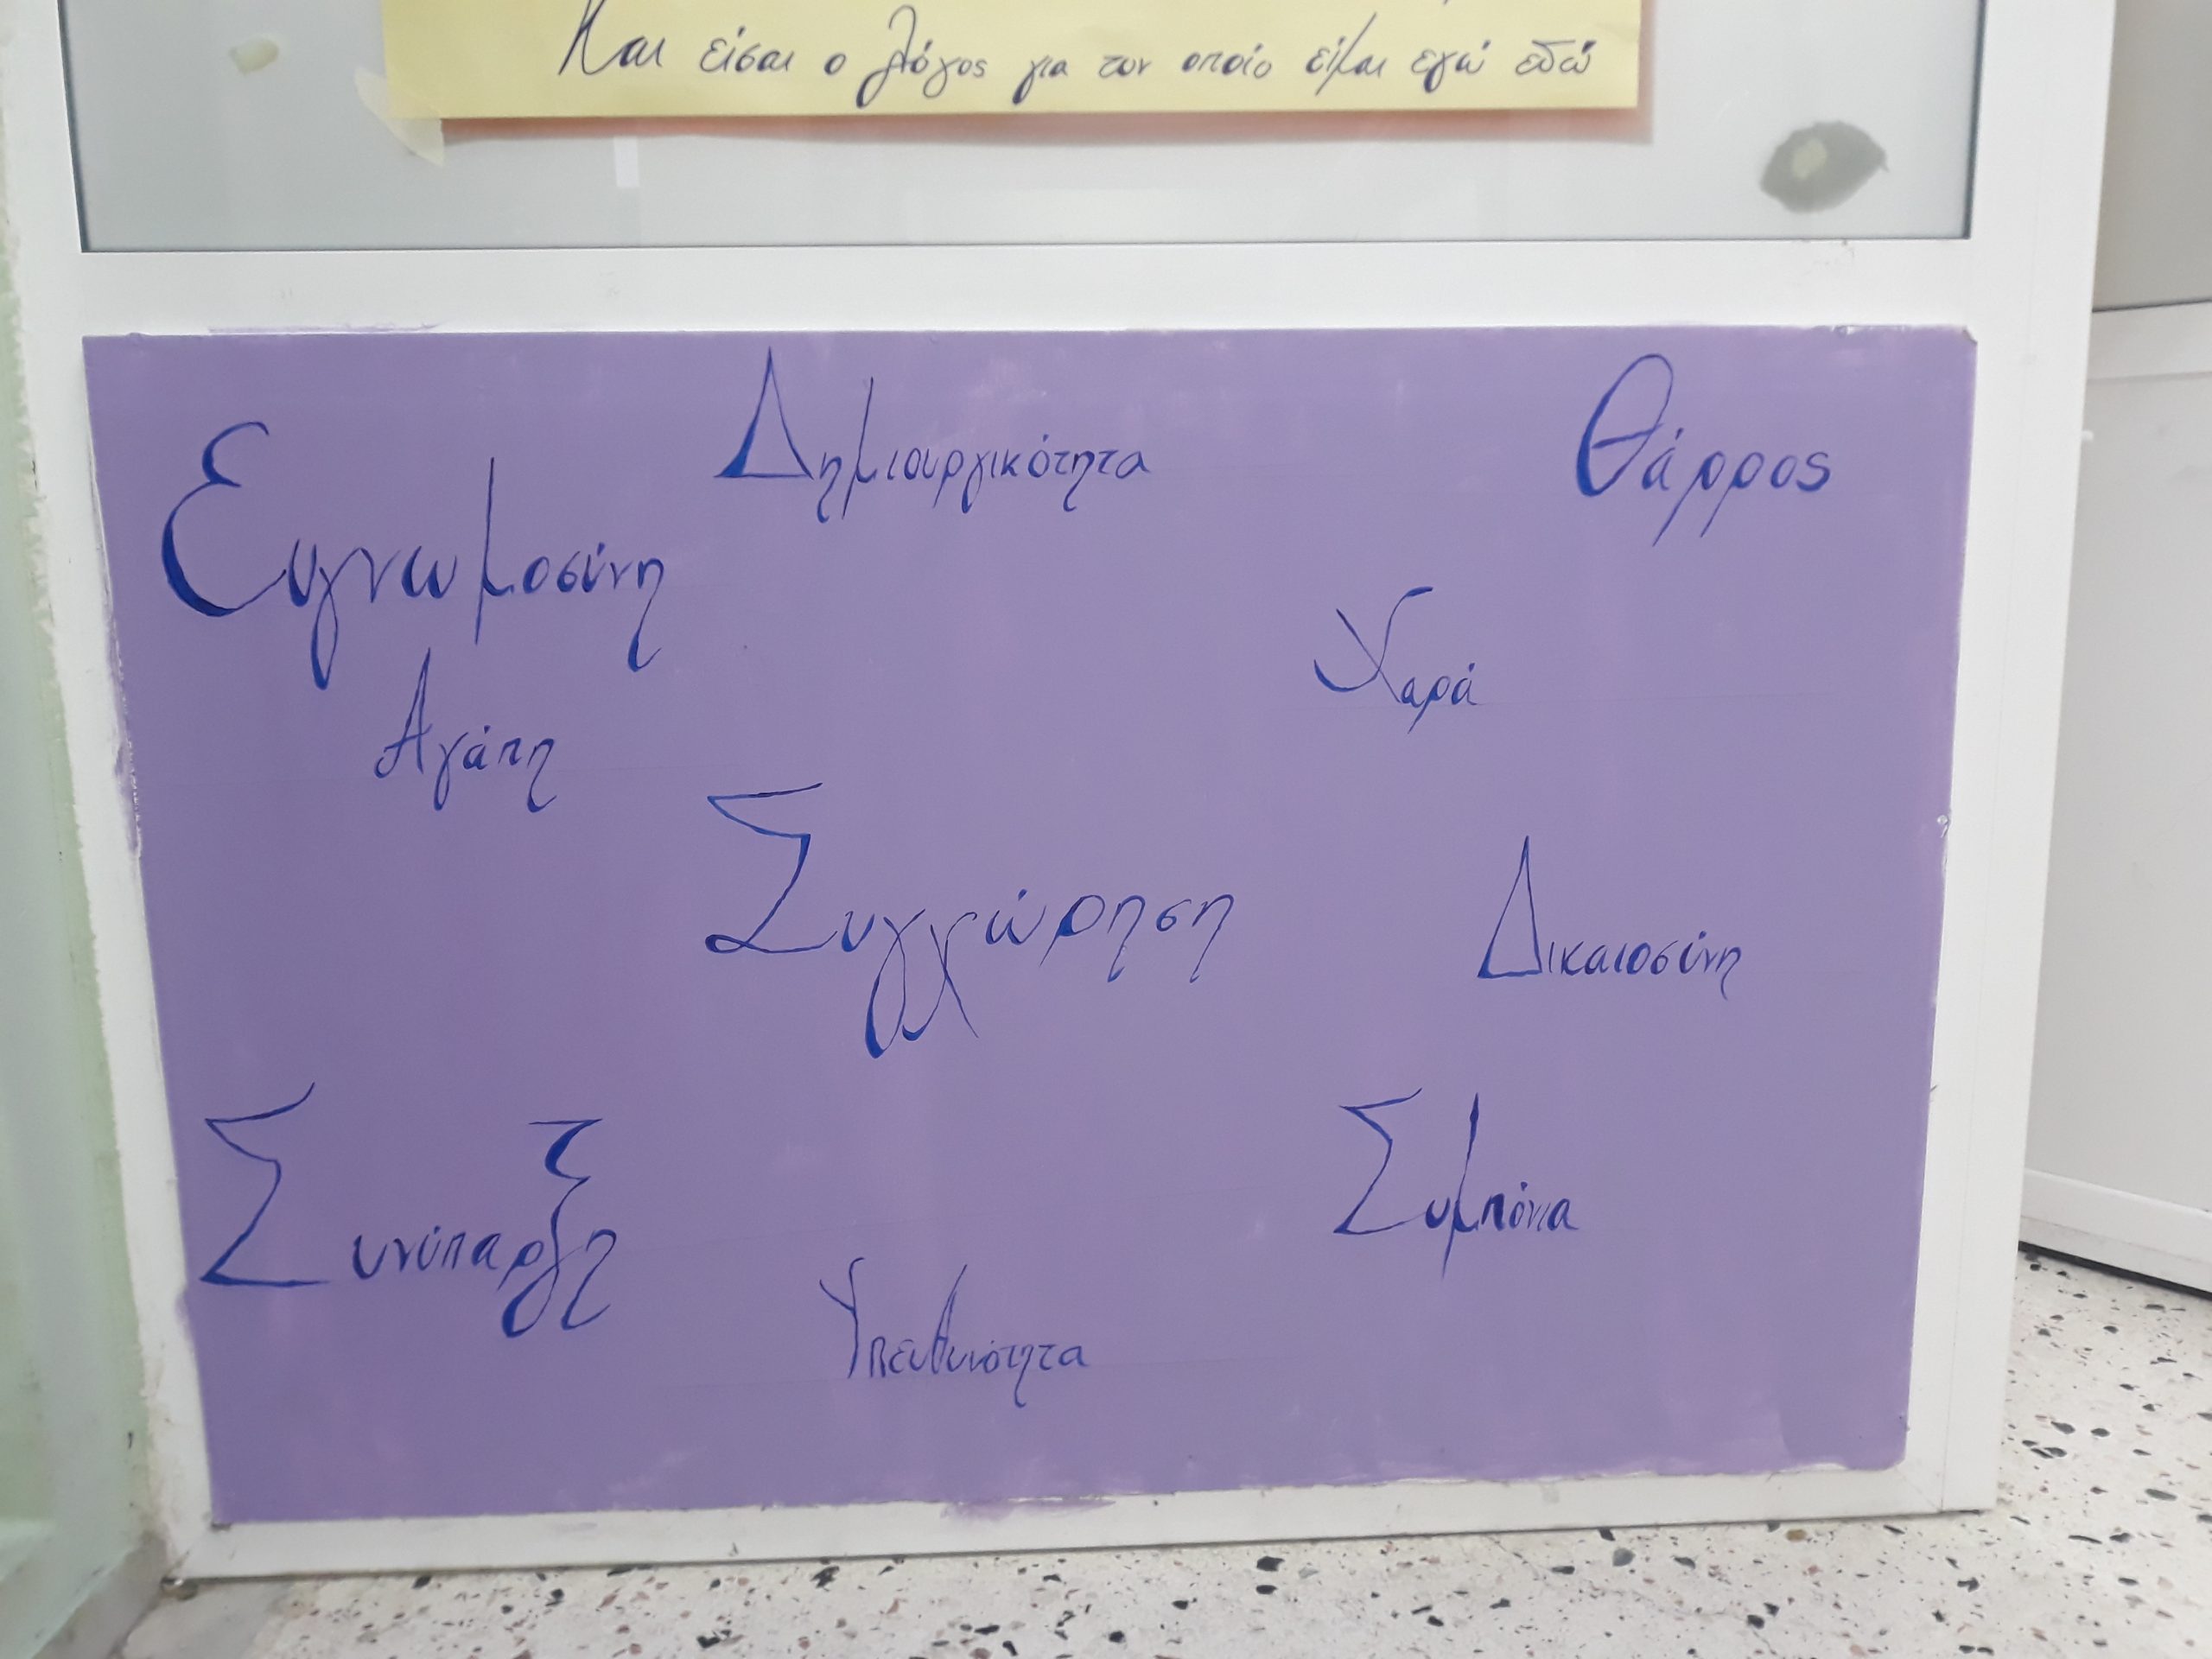 Και είσαι ο λόγος για τον οποίο είμαι εγώ εδώ
Δημιουργικότητα
Θάρρος
Ευγνωμοσύνη
Χαρά
Αγάπη
Συγχώρηση
Δικαιοσύνη
Συνύπαρξη
Συμπόνια
Υπευθυνότητα